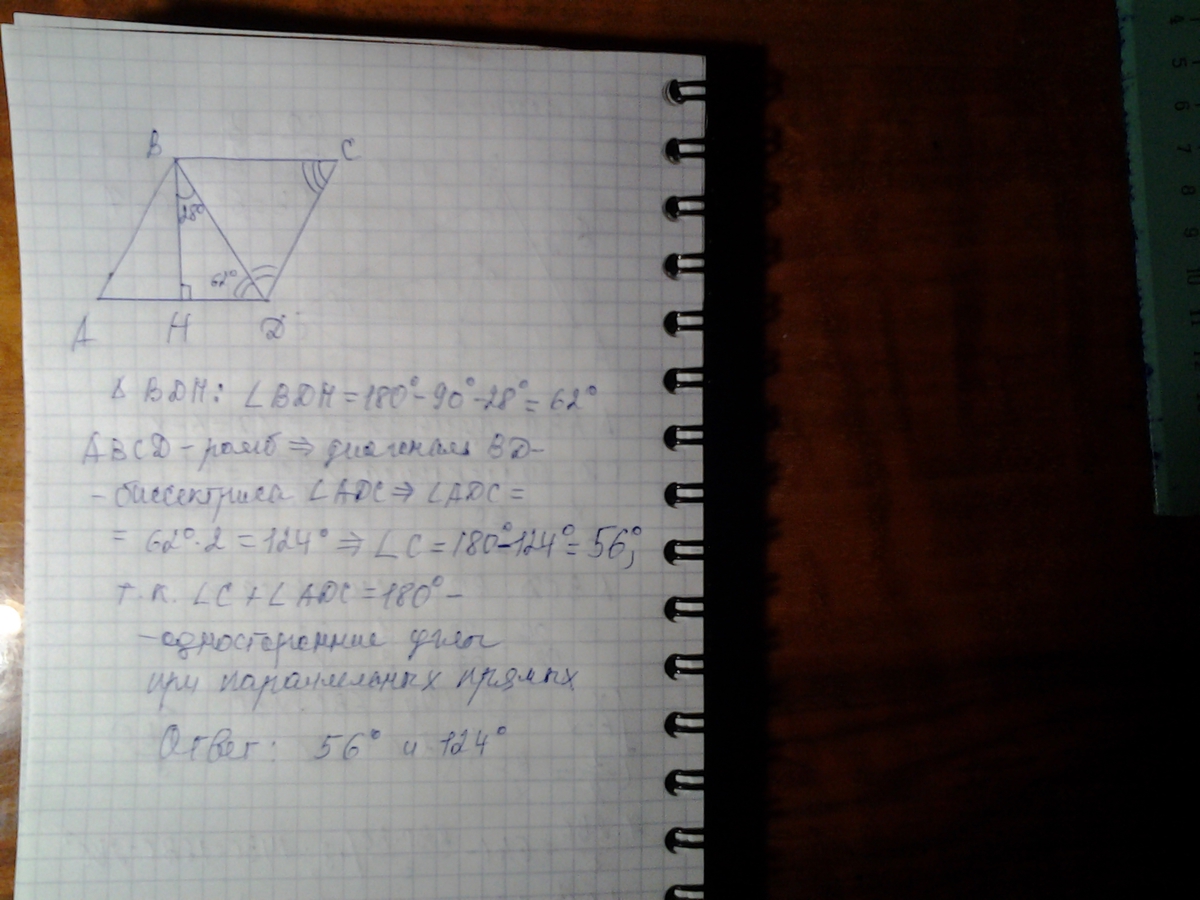 B
C
28°
62°
A
H
D
Δ BDH: ∠BDH = 180° - 90° - 28° = 62°
ABCD - ромб ⇒ диагональ BD -
- биссектриса ∠ADC ⇒ ∠ADC =
= 62° · 2 = 124° ⇒ ∠C = 180° - 124° = 56°,
т.к. ∠C + ∠ADC = 180° -
- односторонние углы
при параллельных прямых
Ответ: 56° и 124°
4
5
6
7
8
9
10